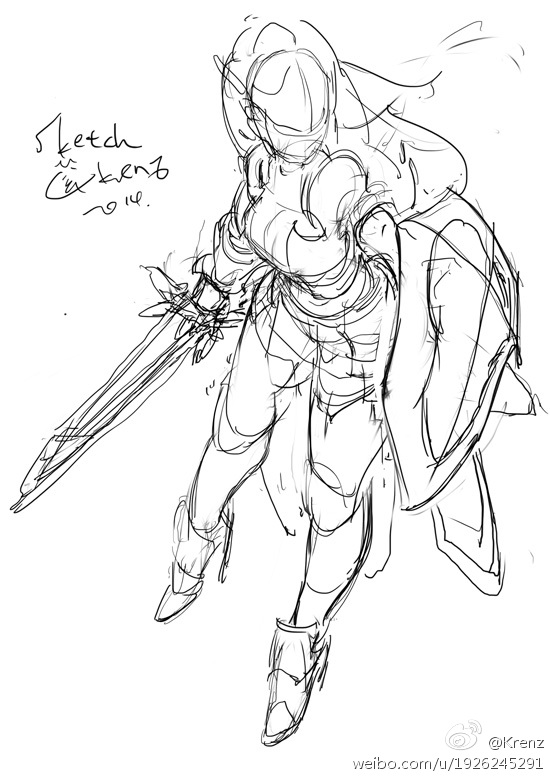 Sketch
krenz
@Krenz
weibo.com/u/1926245291